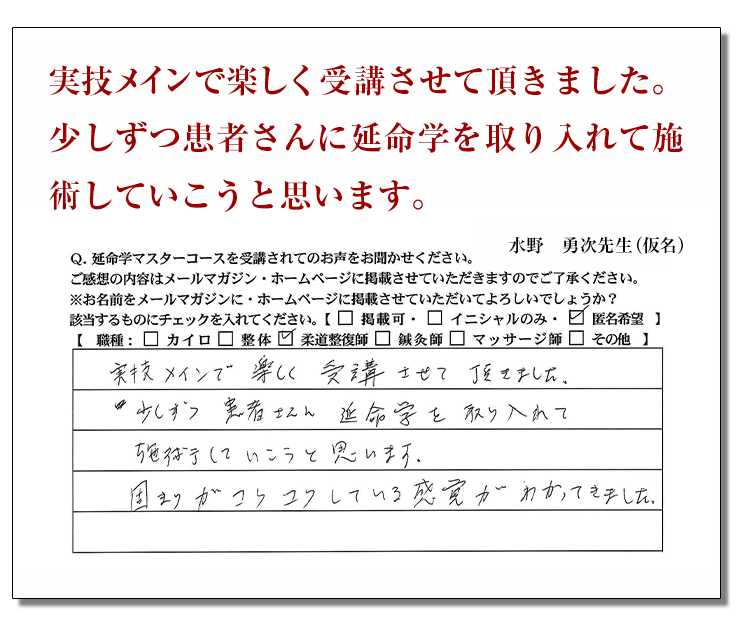 実技メインで楽しく受講させて頂きました。
少しずつ患者さんに延命学を取り入れて施
術していこうと思います。
水野　勇次先生（仮名）
Q. 延命学マスターコースを受講されてのお声をお聞かせください。
ご感想の内容はメールマガジン・ホームページに掲載させていただきますのでご了承ください。
※お名前をメールマガジンに・ホームページに掲載させていただいてよろしいでしょうか？
該当するものにチェックを入れてください。【 □ 掲載可・ □ イニシャルのみ・ ☑ 匿名希望 】
【 職種： □ カイロ □ 整体 ☑ 柔道整復師 □ 鍼灸師 □ マッサージ師 □ その他 】
実技メインで 楽しく 受講させて 頂きました。
少しずつ 患者さん 延命学を 取り入れて
施術していこうと思います。
固まりがコリコリしている感覚がわかってきました。